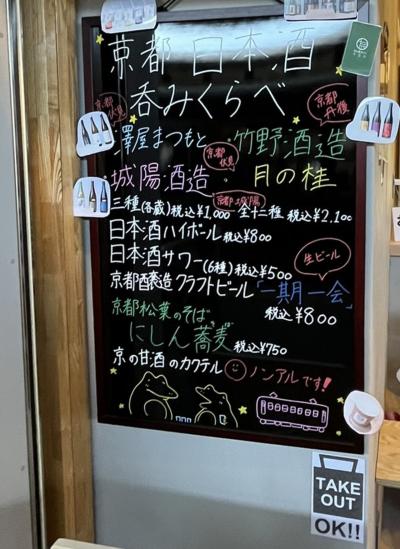 京都 日本酒
呑みくらべ
京都伏見
京都丹後
澤屋まつもと 竹野酒造
京都伏見
城陽酒造 月の桂
京都城陽
三種(各蔵)税込¥1,000 全十二種 税込¥2,100
日本酒ハイボール 税込¥800
日本酒サワー(6種)税込¥500
生ビール
京都醸造クラフトビール「一期一会」
税込¥800
京都松葉のそば
にしん蕎麦 税込¥750
京の甘酒のカクテル ノンアルです!
TAKE
OUT
OK!!